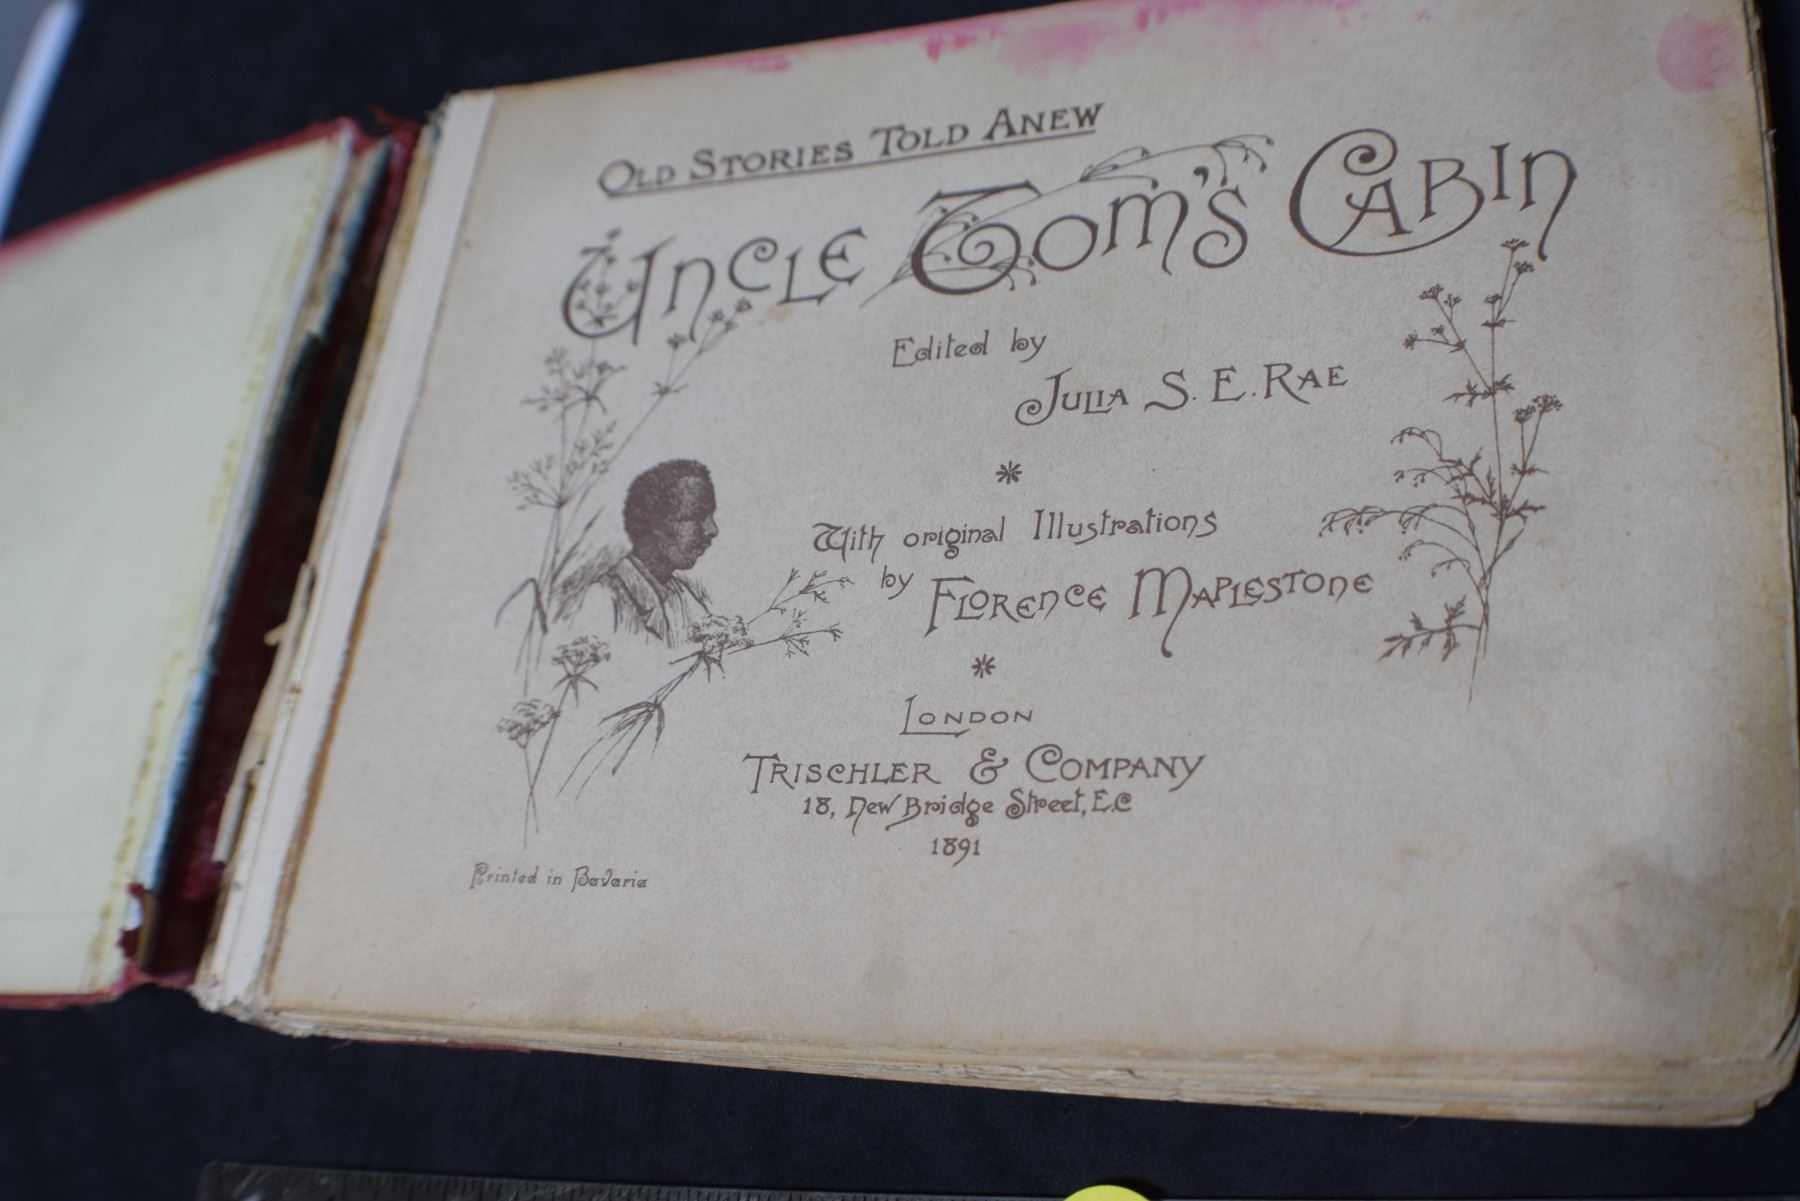 Old Stories Told Anew
Uncle Tom's Cabin
Edited by
Julia S. E. Rae
*
With original Illustrations
by Florence Maplestone
*
London
Trischler & Company
18, New Bridge Street, E.C
1891
Printed in Bavaria